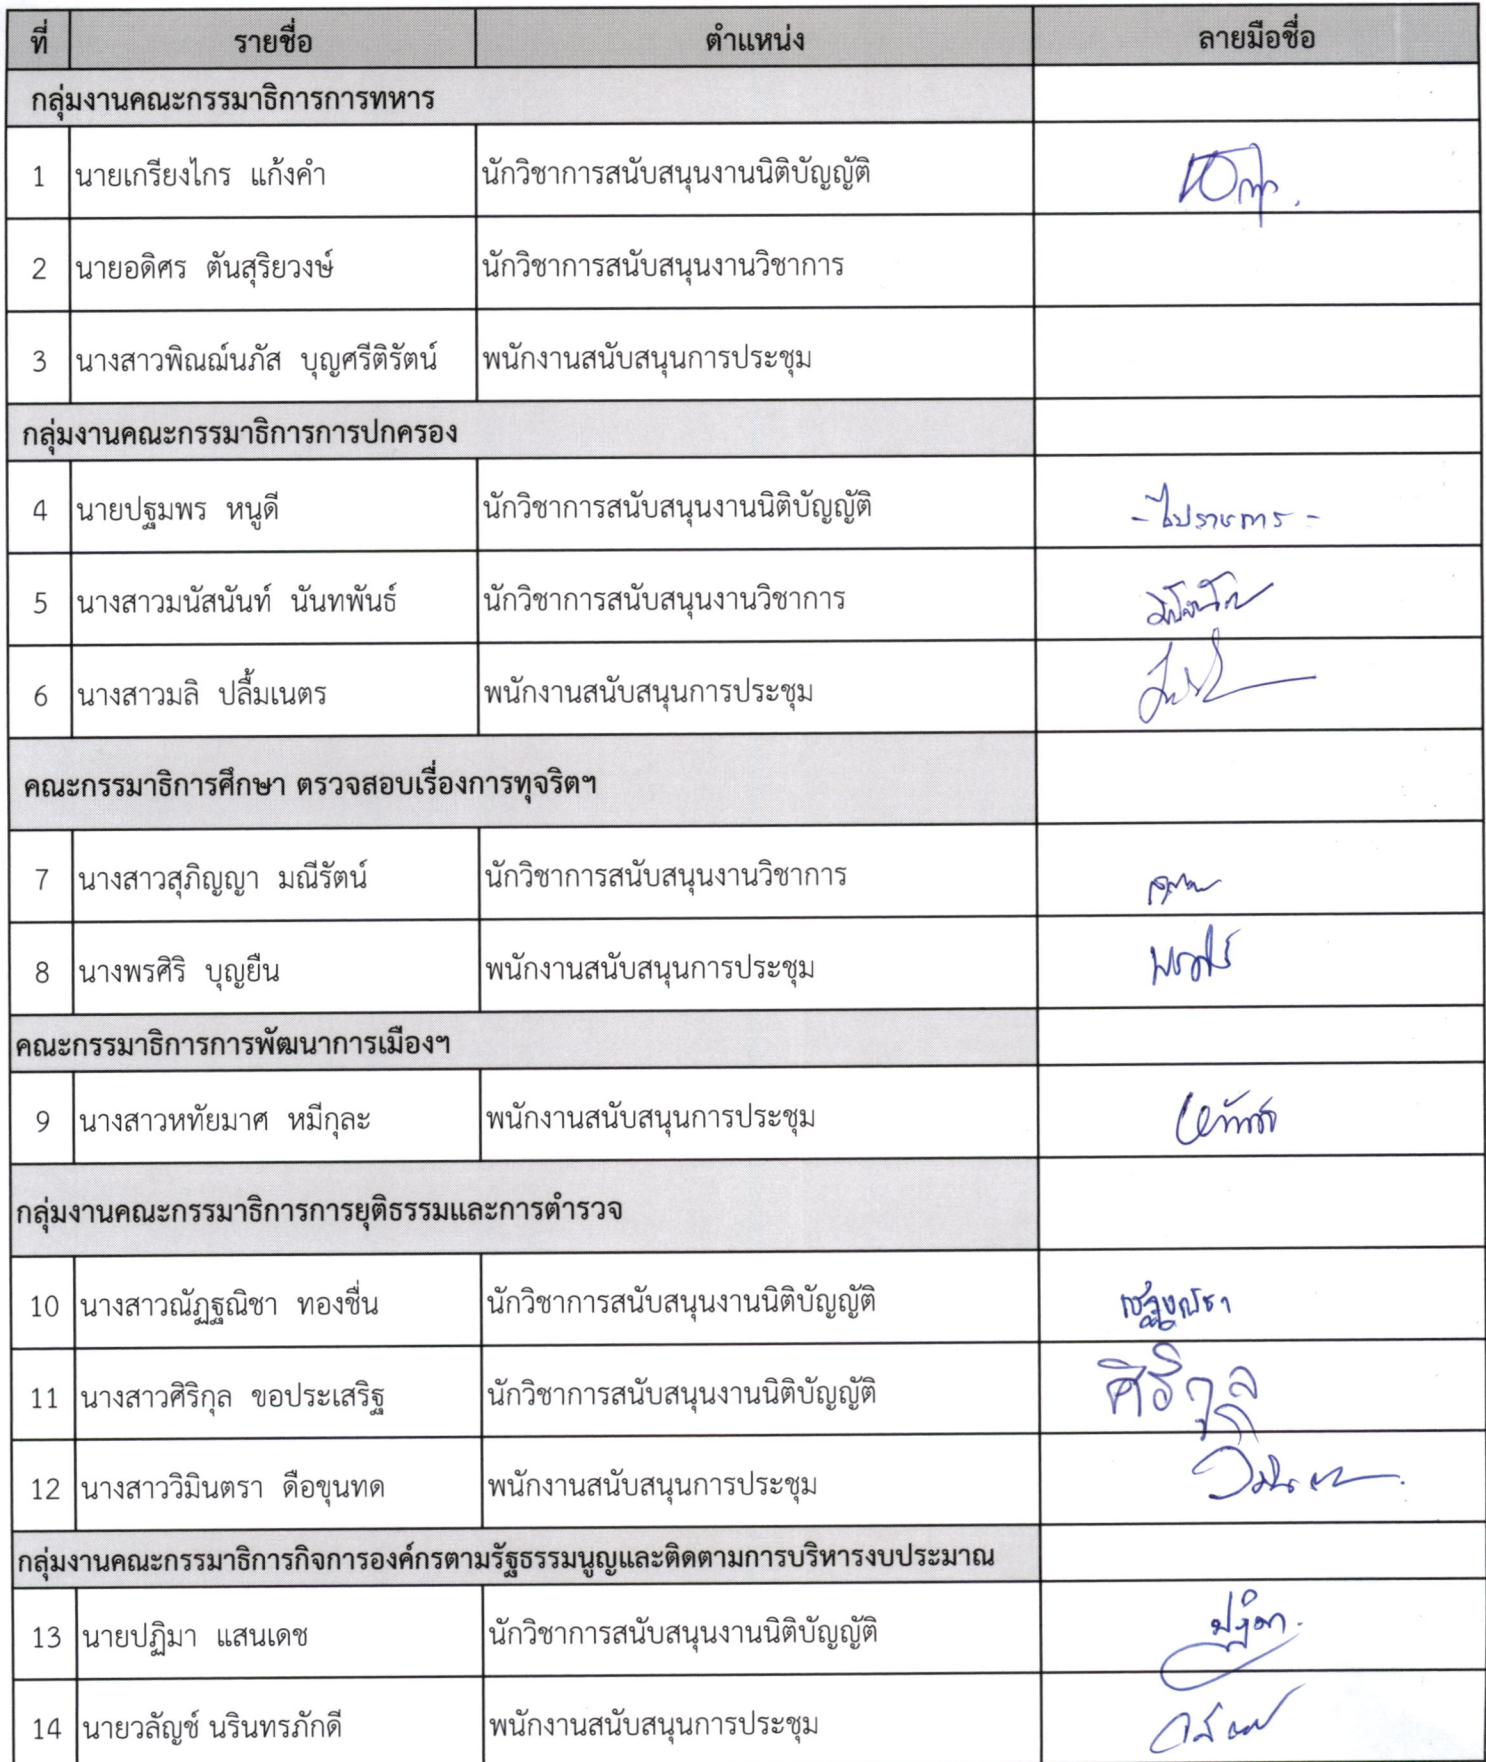 ที่ รายชื่อ ตำแหน่ง ลายมือชื่อ
กลุ่มงานคณะกรรมาธิการการทหาร
1 นายเกรียงไกร แก้งคำ นักวิชาการสนับสนุนงานนิติบัญญัติ
2 นายอดิศร ตันสุริยวงษ์ นักวิชาการสนับสนุนงานวิชาการ
3 นางสาวพิณฌ์นภัส บุญศรีติรัตน์ พนักงานสนับสนุนการประชุม
กลุ่มงานคณะกรรมาธิการการปกครอง
4 นายปฐมพร หนูดี นักวิชาการสนับสนุนงานนิติบัญญัติ - ไปราชการ -
5 นางสาวมนัสนันท์ นันทพันธ์ นักวิชาการสนับสนุนงานวิชาการ
6 นางสาวมลิ ปลื้มเนตร พนักงานสนับสนุนการประชุม
คณะกรรมาธิการศึกษา ตรวจสอบเรื่องการทุจริตฯ
7 นางสาวสุภิญญา มณีรัตน์ นักวิชาการสนับสนุนงานวิชาการ
8 นางพรศิริ บุญยืน พนักงานสนับสนุนการประชุม พรศิริ
คณะกรรมาธิการการพัฒนาการเมืองฯ
9 นางสาวหทัยมาศ หมีกุละ พนักงานสนับสนุนการประชุม
กลุ่มงานคณะกรรมาธิการการยุติธรรมและการตำรวจ
10 นางสาวณัฏฐณิชา ทองชื่น นักวิชาการสนับสนุนงานนิติบัญญัติ ณัฏฐณิชา
11 นางสาวศิริกุล ขอประเสริฐ นักวิชาการสนับสนุนงานนิติบัญญัติ ศิริกุล
12 นางสาววิมินตรา ดือขุนทด พนักงานสนับสนุนการประชุม
กลุ่มงานคณะกรรมาธิการกิจการองค์กรตามรัฐธรรมนูญและติดตามการบริหารงบประมาณ
13 นายปฏิมา แสนเดช นักวิชาการสนับสนุนงานนิติบัญญัติ ปฏิมา
14 นายวลัญช์ นรินทรภักดี พนักงานสนับสนุนการประชุม